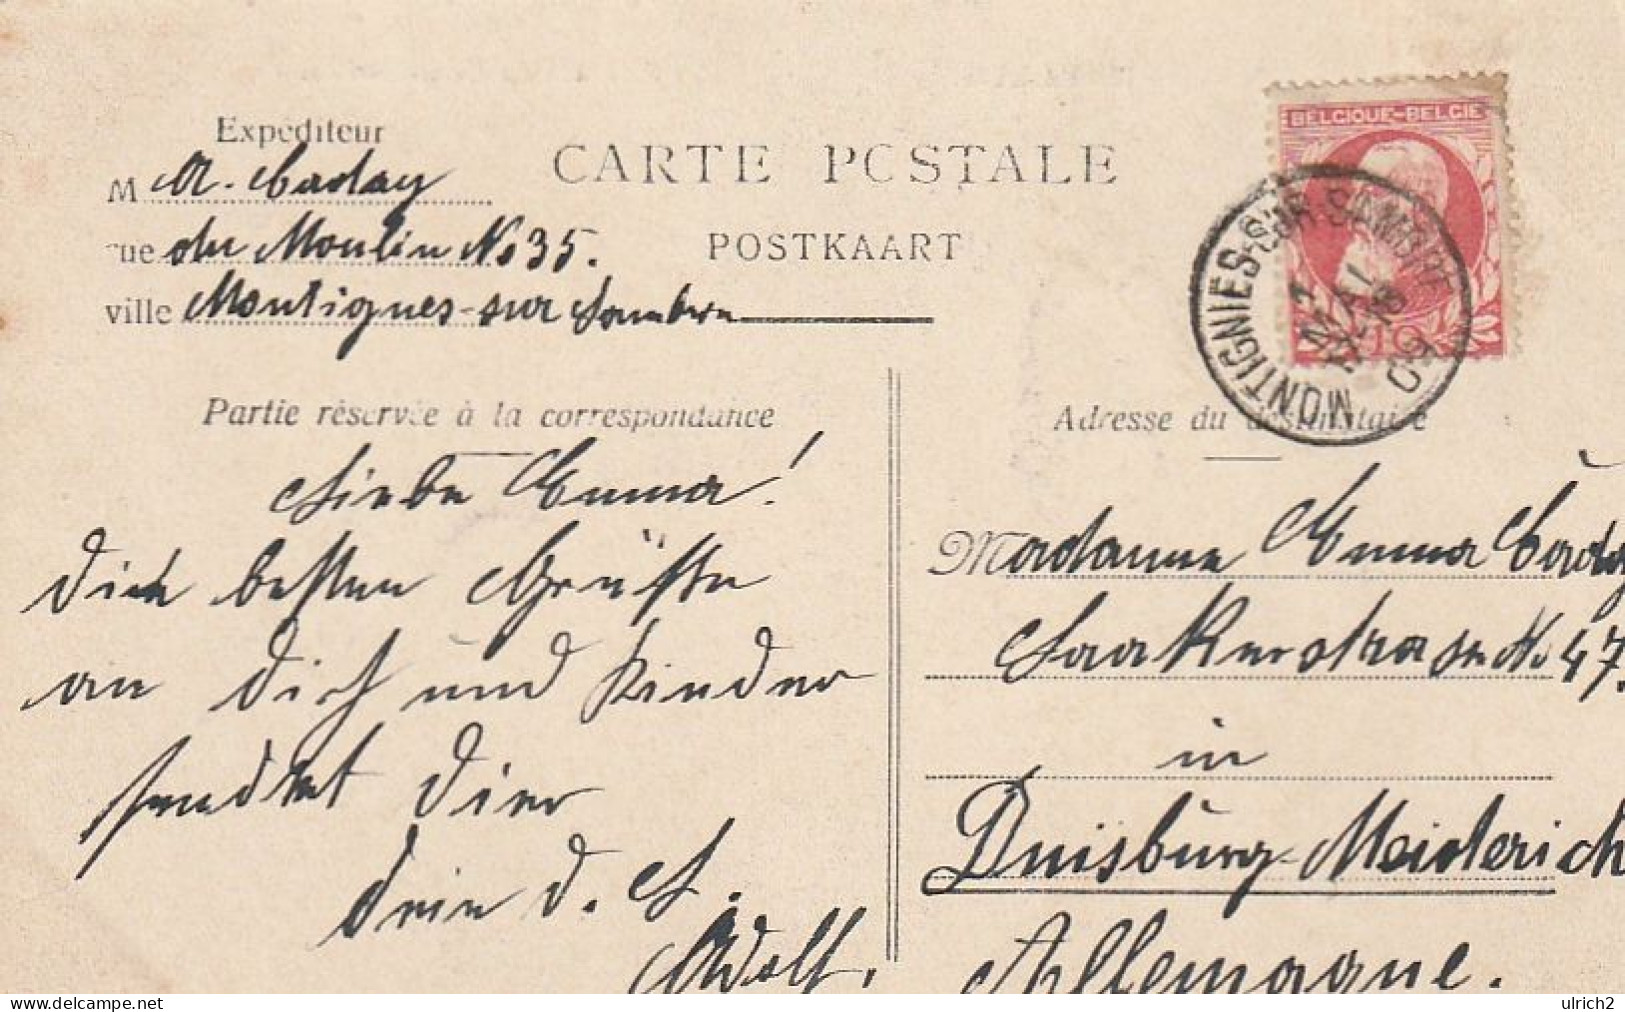 BELGIQUE-BELGIE
Expéditeur
CARTE POSTALE
M A. Caday
rue du Moulin No 35.
POSTKAART
ville Montignies-sur Sambre
MONTIGNIES-SUR-SAMBRE
1
MAI
09
10
Partie réservée à la correspondance
Adresse du destinataire
Liebe Emma!
Die besten Grüße
an Dich und Kinder
sendet Dir
Dein d. L.
Adolf.
Madame Emma Caday
No 47.
in
Duisburg-Meiderich
Allemagne.
ulrich2